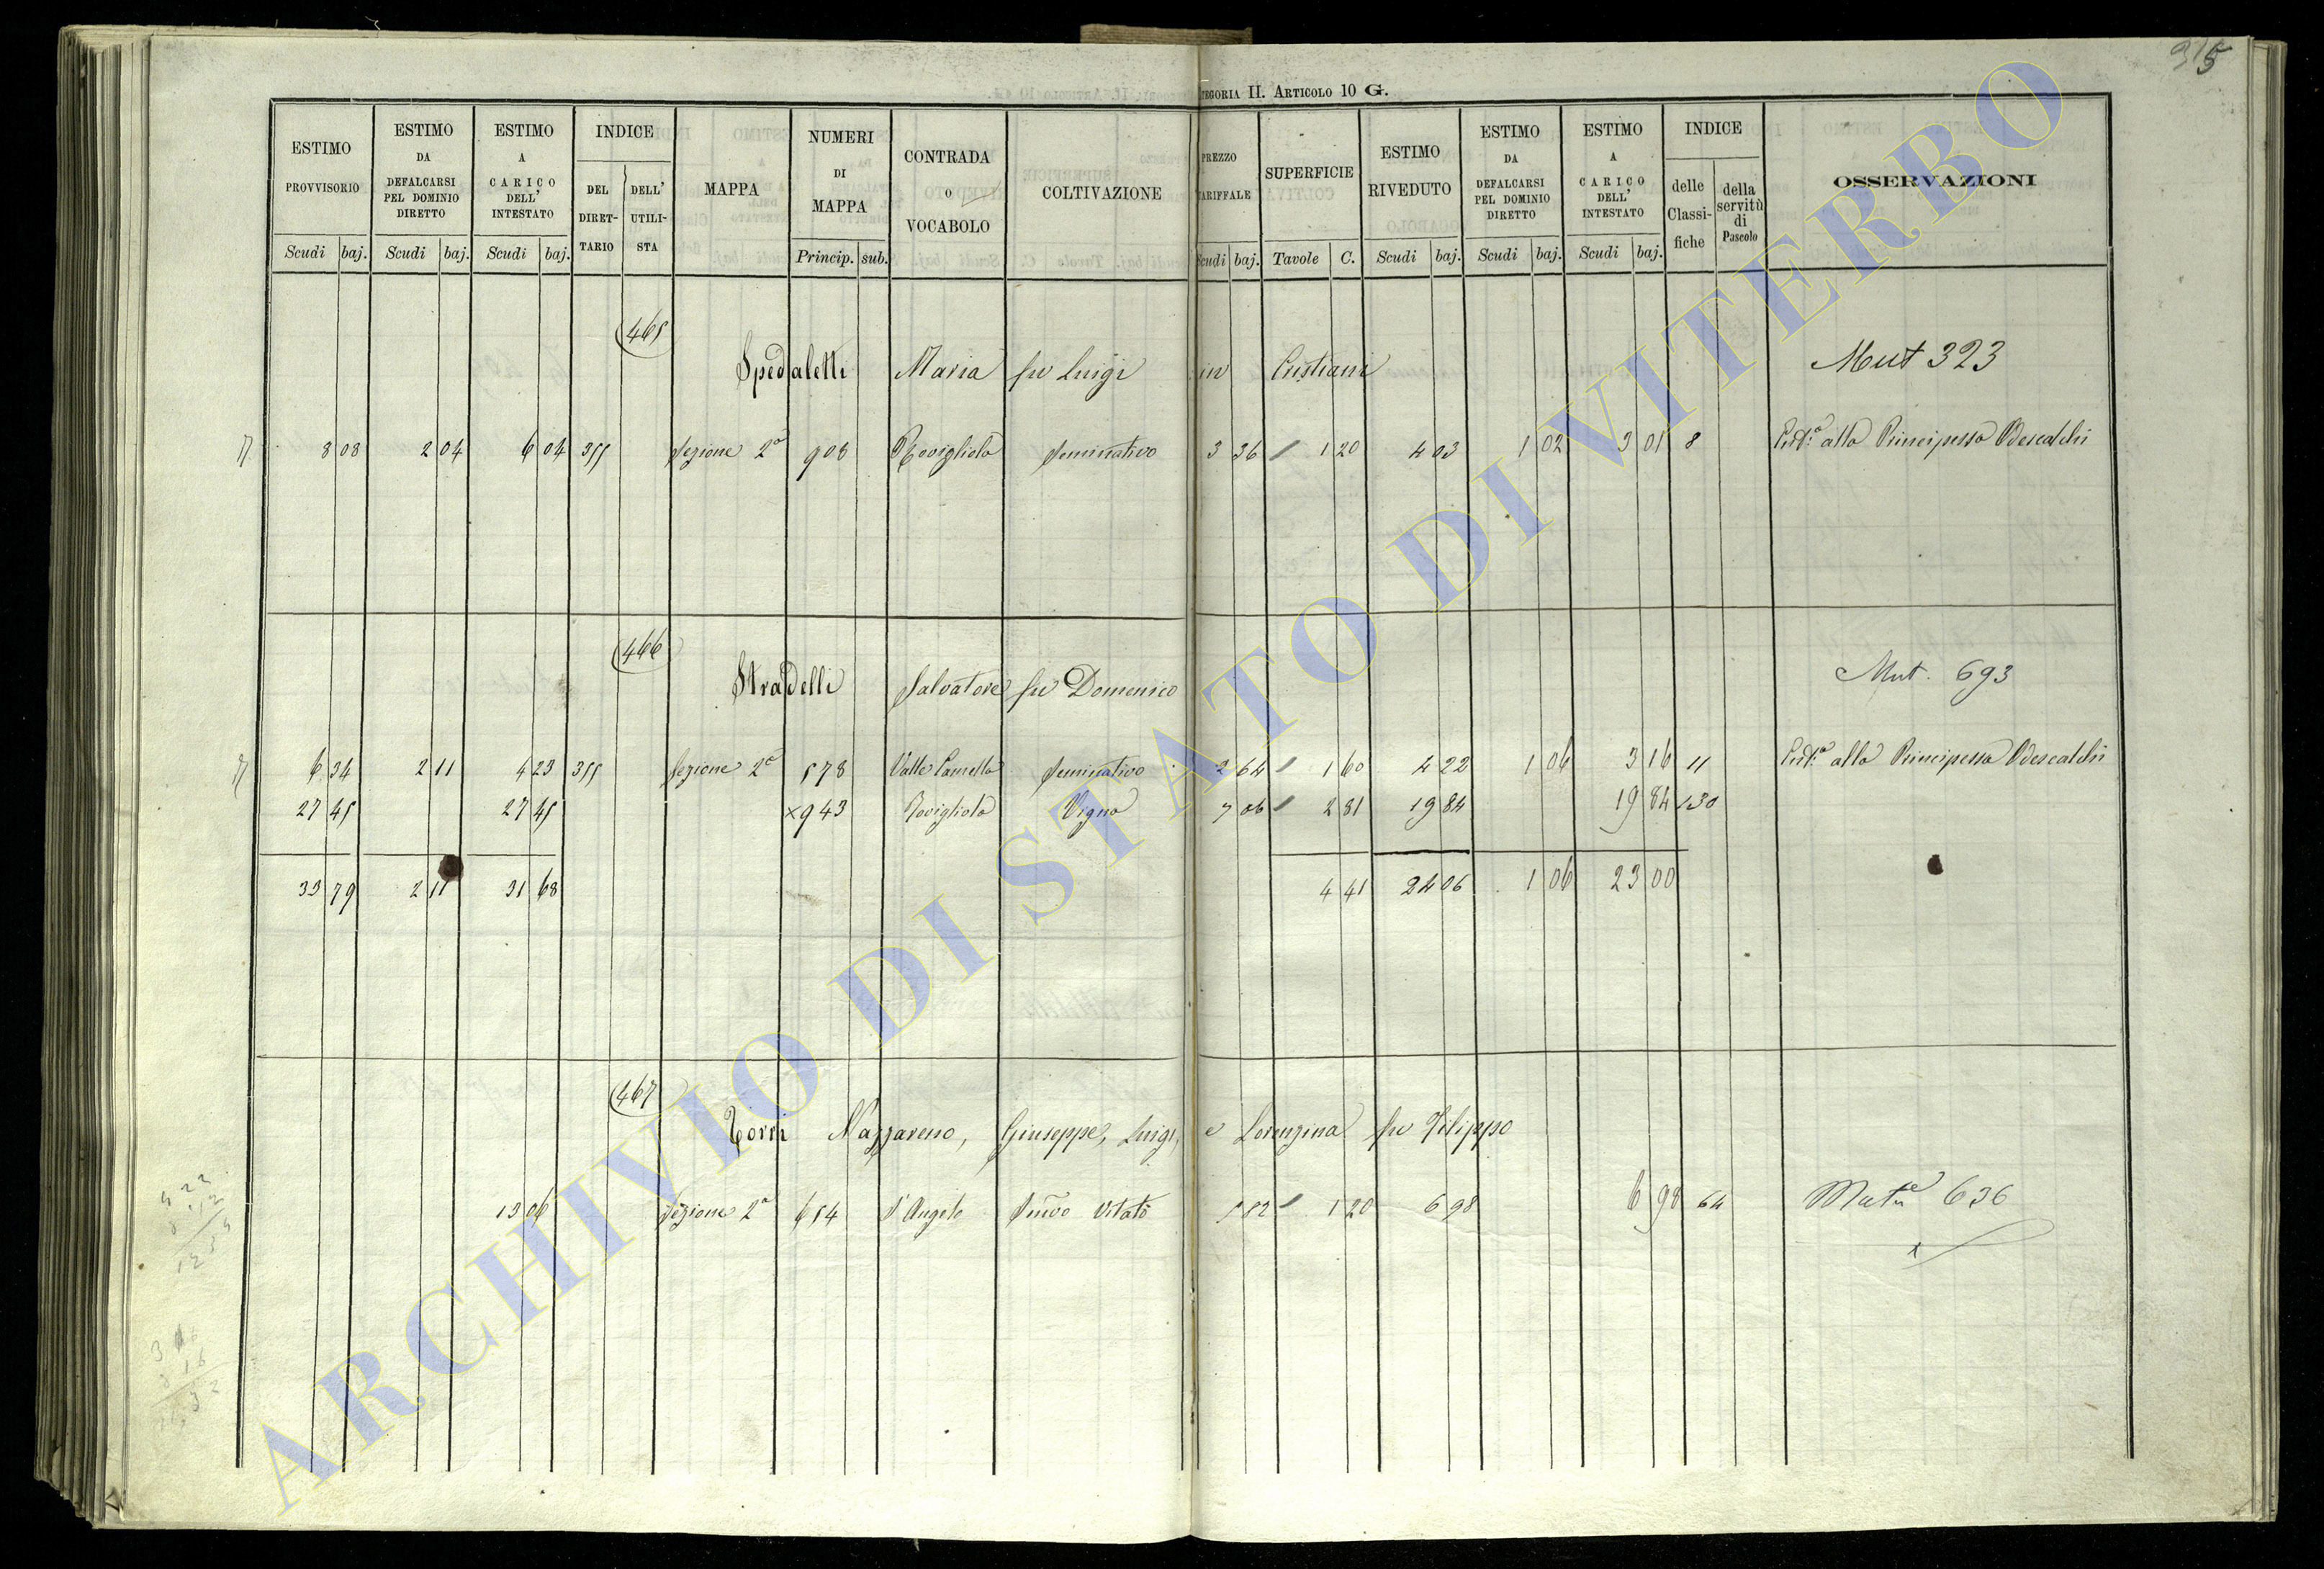 315
TEGORIA II. ARTICOLO 10 G.
ESTIMO PROVVISORIO | ESTIMO DA DEFALCARSI PEL DOMINIO DIRETTO | ESTIMO A CARICO DELL' INTESTATO | INDICE DEL DIRETTARIO | DELL' UTILISTA | MAPPA | NUMERI DI MAPPA | CONTRADA O VOCABOLO | COLTIVAZIONE | PREZZO TARIFFALE | SUPERFICIE | ESTIMO RIVEDUTO | ESTIMO DA DEFALCARSI PEL DOMINIO DIRETTO | ESTIMO A CARICO DELL' INTESTATO | INDICE delle Classifiche | della servitù di Pascolo | OSSERVAZIONI
Scudi baj. | Scudi baj. | Scudi baj. | Princip. sub. | Scudi baj. | Tavole C. | Scudi baj. | Scudi baj. | Scudi baj.
465
Spedaletti Maria fu Luigi in Cristiani Mut 323
8 08 2 04 6 04 355 Sezione 2a 908 Rovigliola Seminativo 3 36 1 20 4 03 1 02 3 01 8 alla Principessa Odescalchi
466
Stradelli Salvatore fu Domenico Mut. 693
6 34 2 11 4 23 355 Sezione 2a 578 Valle Seminativo 2 64 1 60 4 22 1 06 3 16 11 alla Principessa Odescalchi
27 45 27 45 x943 Rovigliola Vigna 7 06 2 81 19 84 19 84 130
33 79 2 11 31 68 4 41 24 06 1 06 23 00
467
Torri Nazzareno, Giuseppe, Luigi, e Lorenzina fu Filippo
13 06 Sezione 2a 654 S Angelo Semo Vitato 5 82 1 20 6 98 6 98 64 636
ARCHIVIO DI STATO DI VITERBO